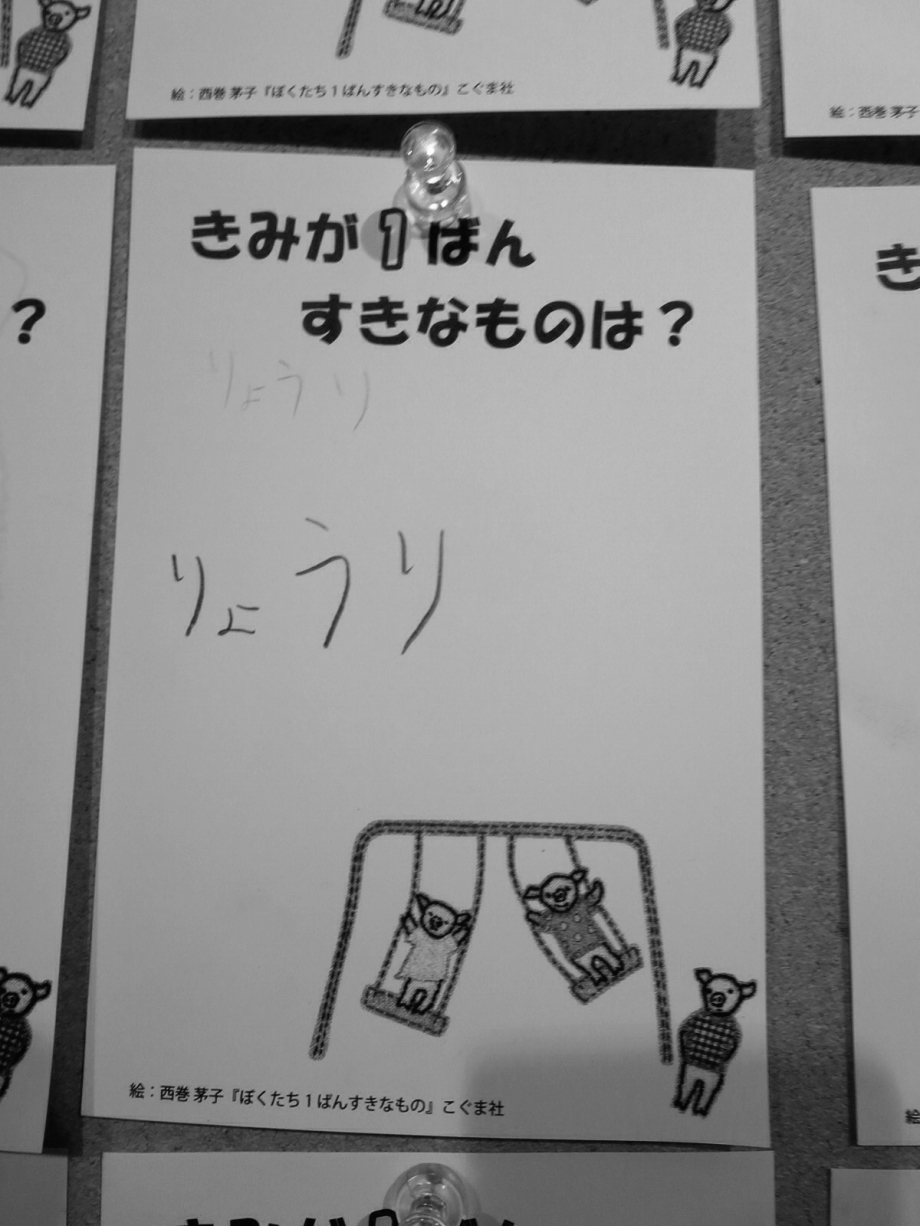 絵：西巻 茅子『ぼくたち１ばんすきなもの』こぐま社
絵：西巻 茅子
きみが1ばん
すきなものは？
りょうり
りょうり
絵：西巻 茅子『ぼくたち１ばんすきなもの』こぐま社
？
き
絵